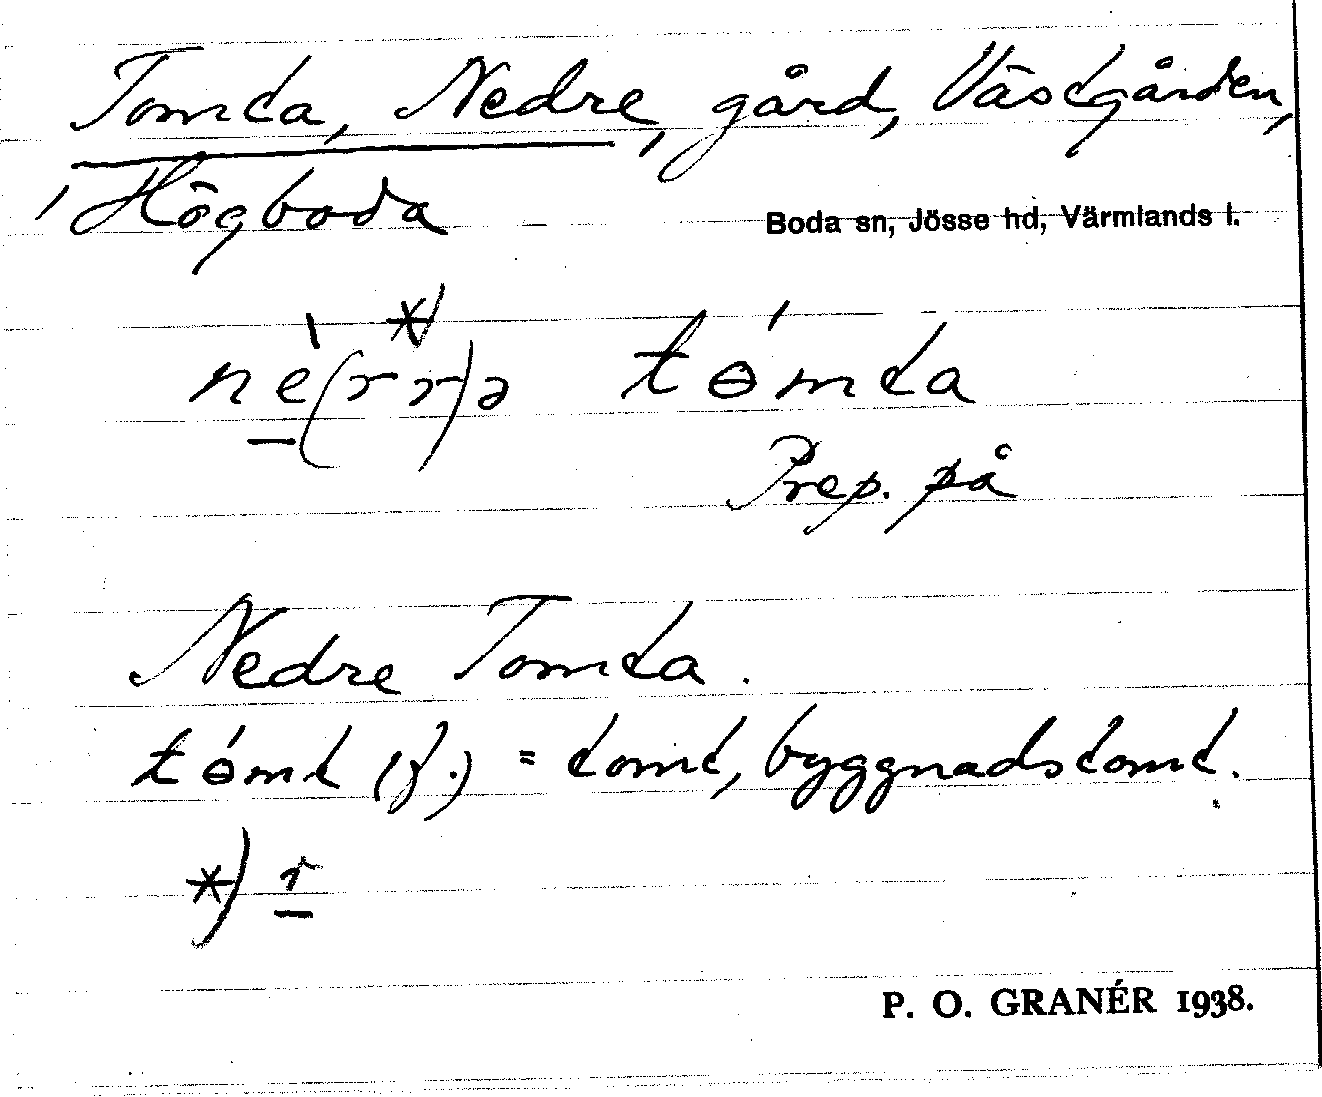 Tomta, Nedre, gård, Västgården,
Högboda
Boda sn, Jösse hd, Värmlands l.
nè(rr)ə tɵ́mta
*)
Prep. på
Nedre Tomta.
tɵ́mt (f.) = tomt, byggnadstomt.
*) r
P. O. GRANÉR 1938.